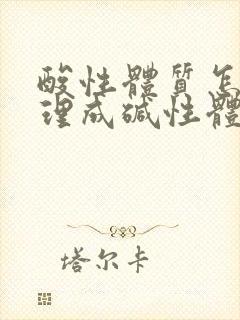 酸性體質怎
理成碱性體
塔尔卡